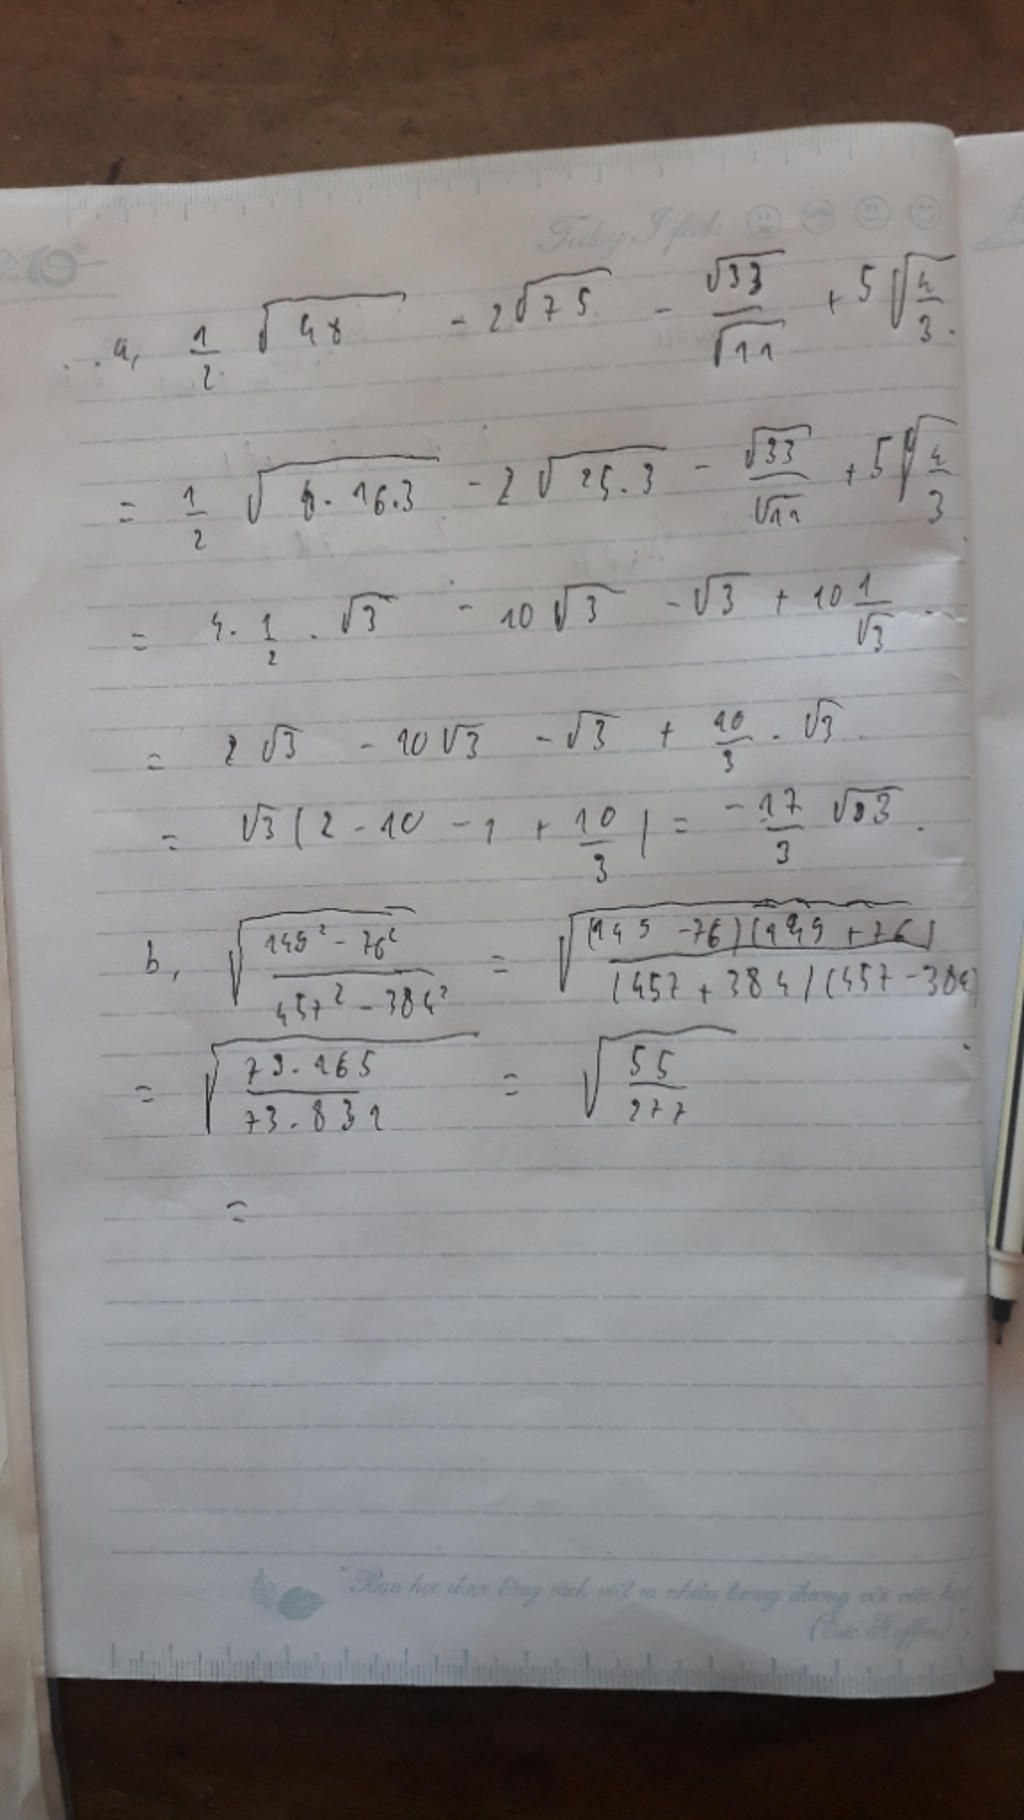 Today I feel:
a, 1/2 √48 - 2√75 - √33/√11 + 5√(4/3).
= 1/2 √(16.3) - 2√(25.3) - √33/√11 + 5√(4/3)
= 4. 1/2 . √3 - 10√3 - √3 + 10 1/√3
= 2√3 - 10√3 - √3 + 10/3 . √3
= √3 (2 - 10 - 1 + 10/3) = -17/3 √3.
b, √((149² - 76²)/(457² - 384²)) = √((149 - 76)(149 + 76)/(457 + 384)(457 - 384))
= √(73.165/73.831) = √(55/277)
=
"Bạn học được bằng cách viết ra nhiều tương đương với việc học
(Eric Hoffer)"